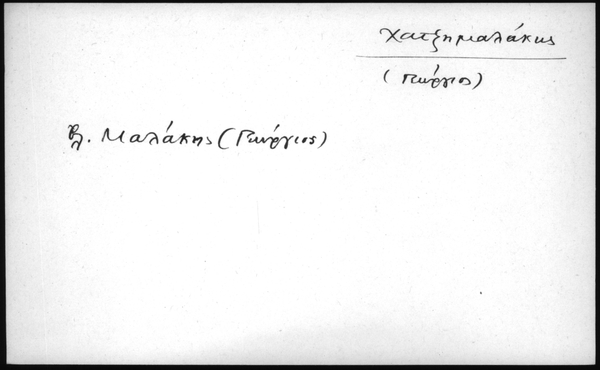 Χατζημαλάκης
(Γεώργιος)
βλ. Μαλάκης (Γεώργιος)